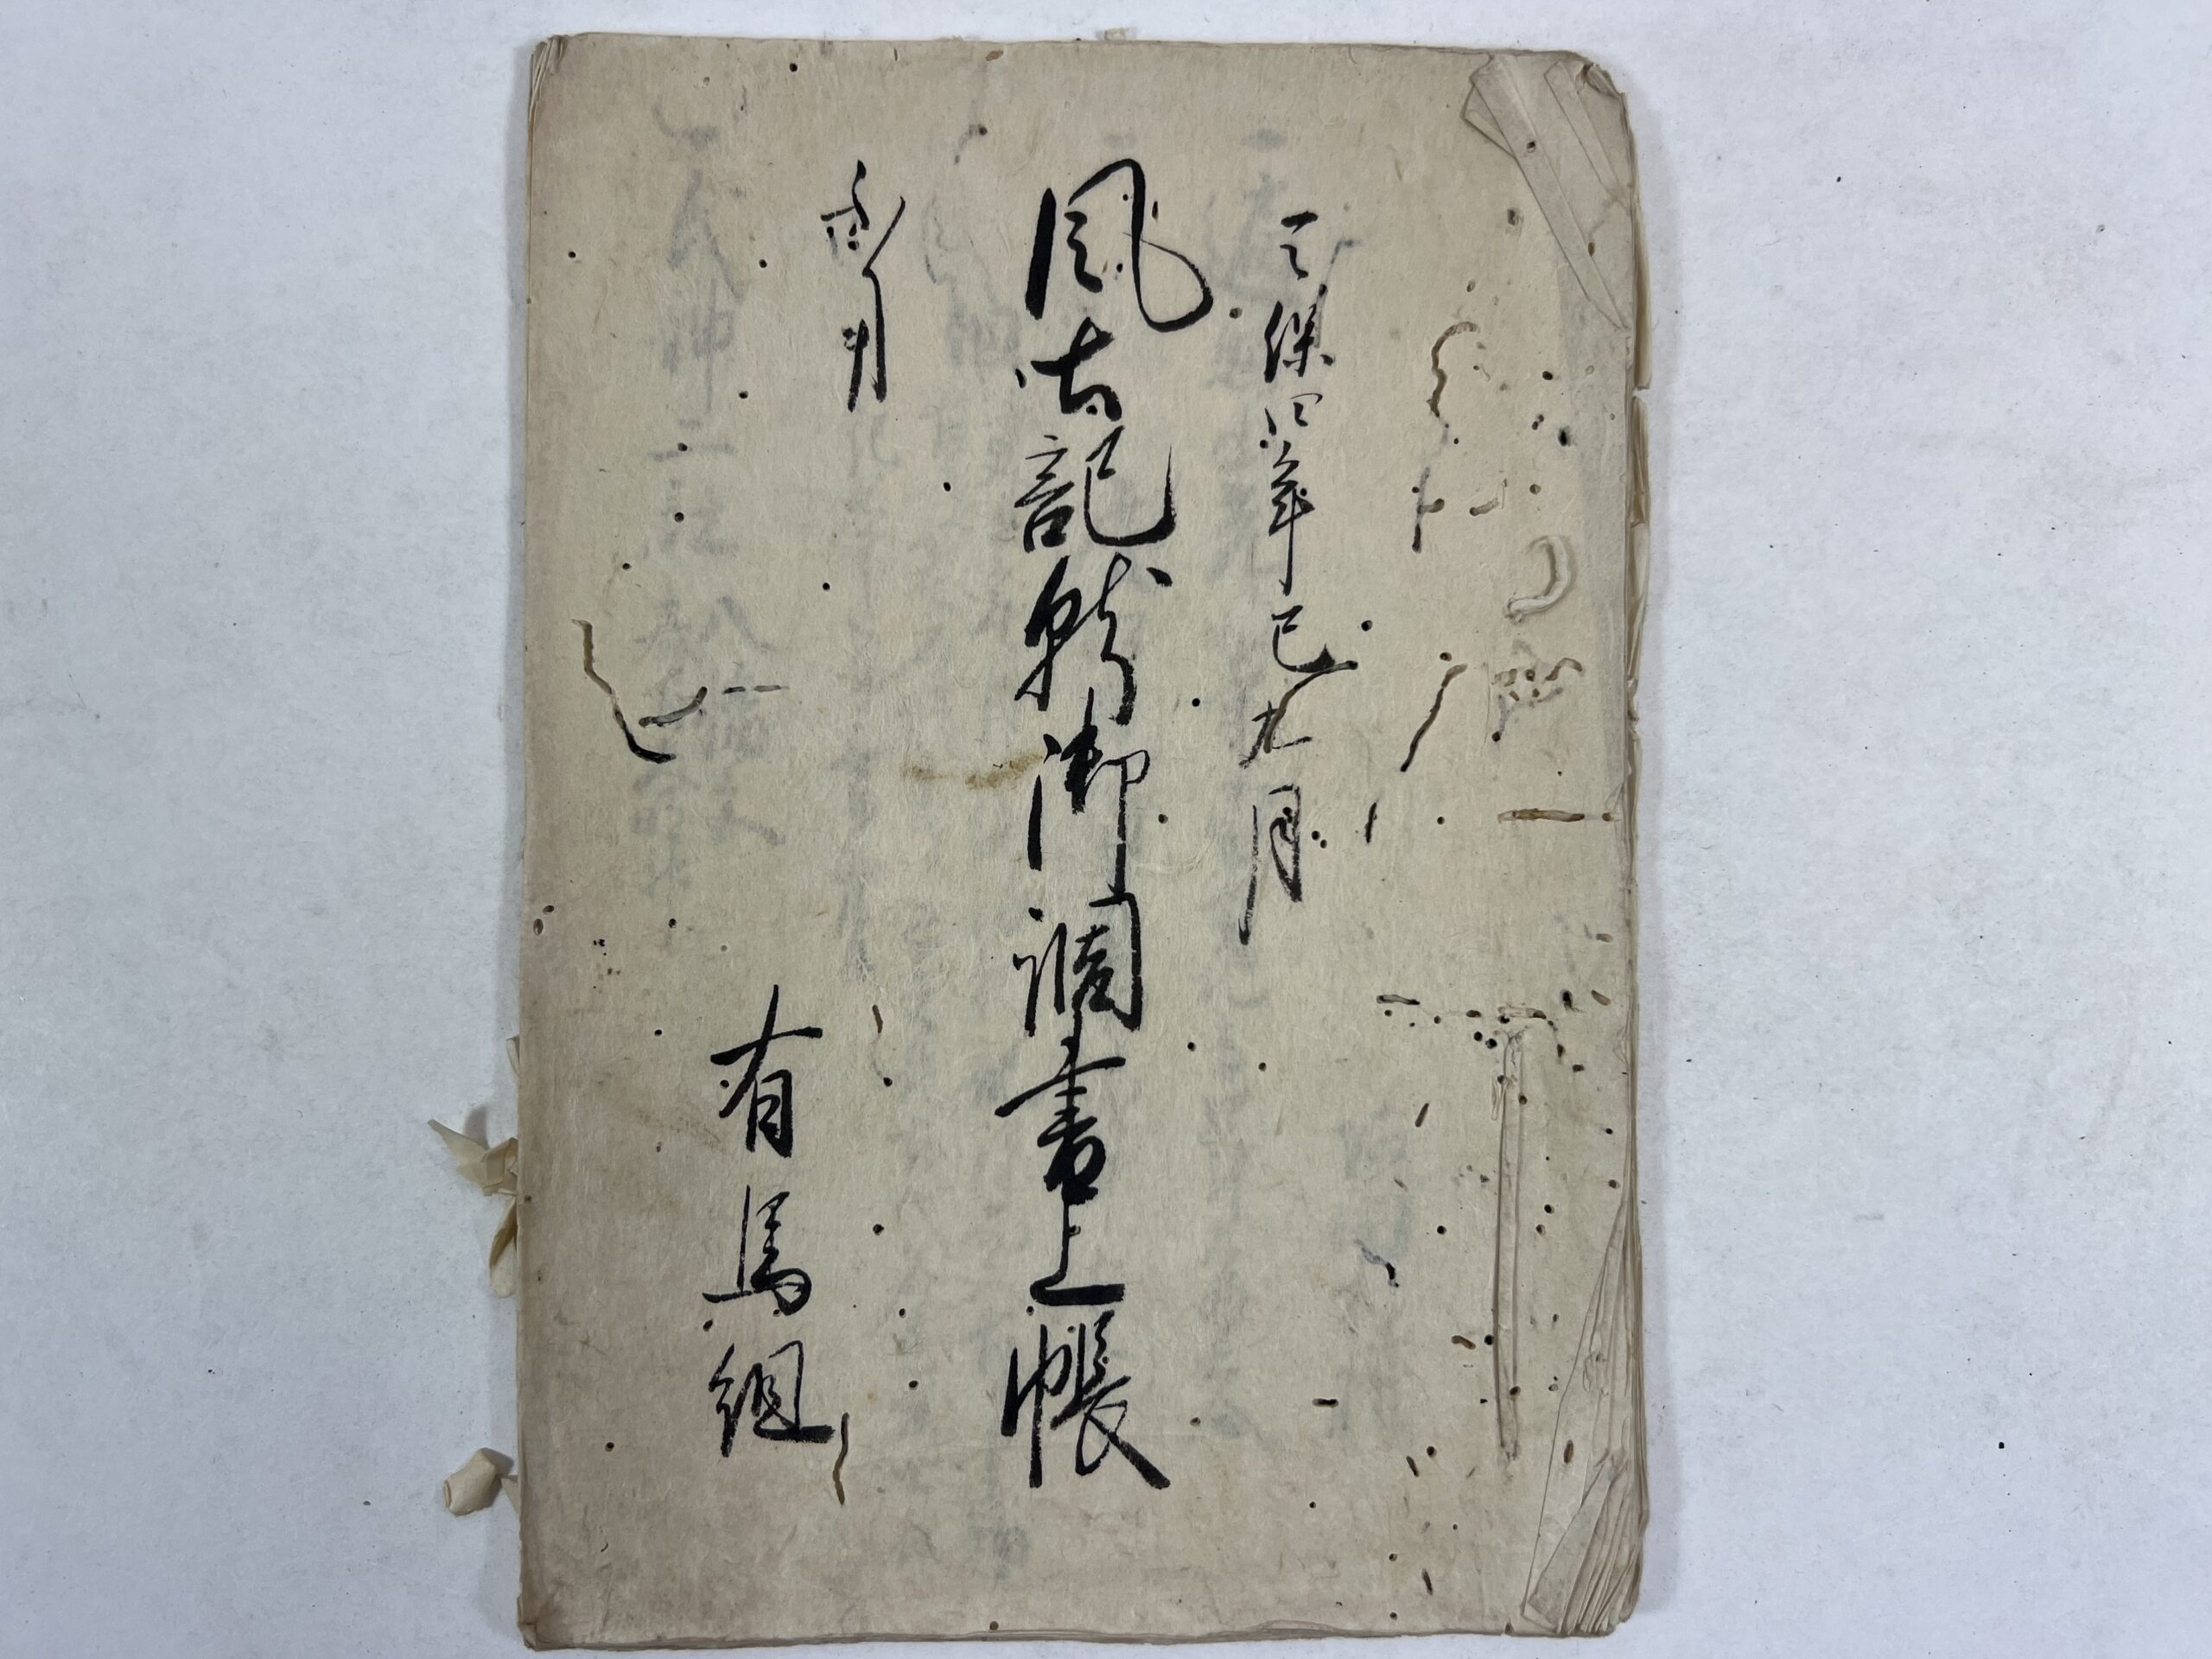 天保四年巳九月
風土記就御調書上帳
有馬組